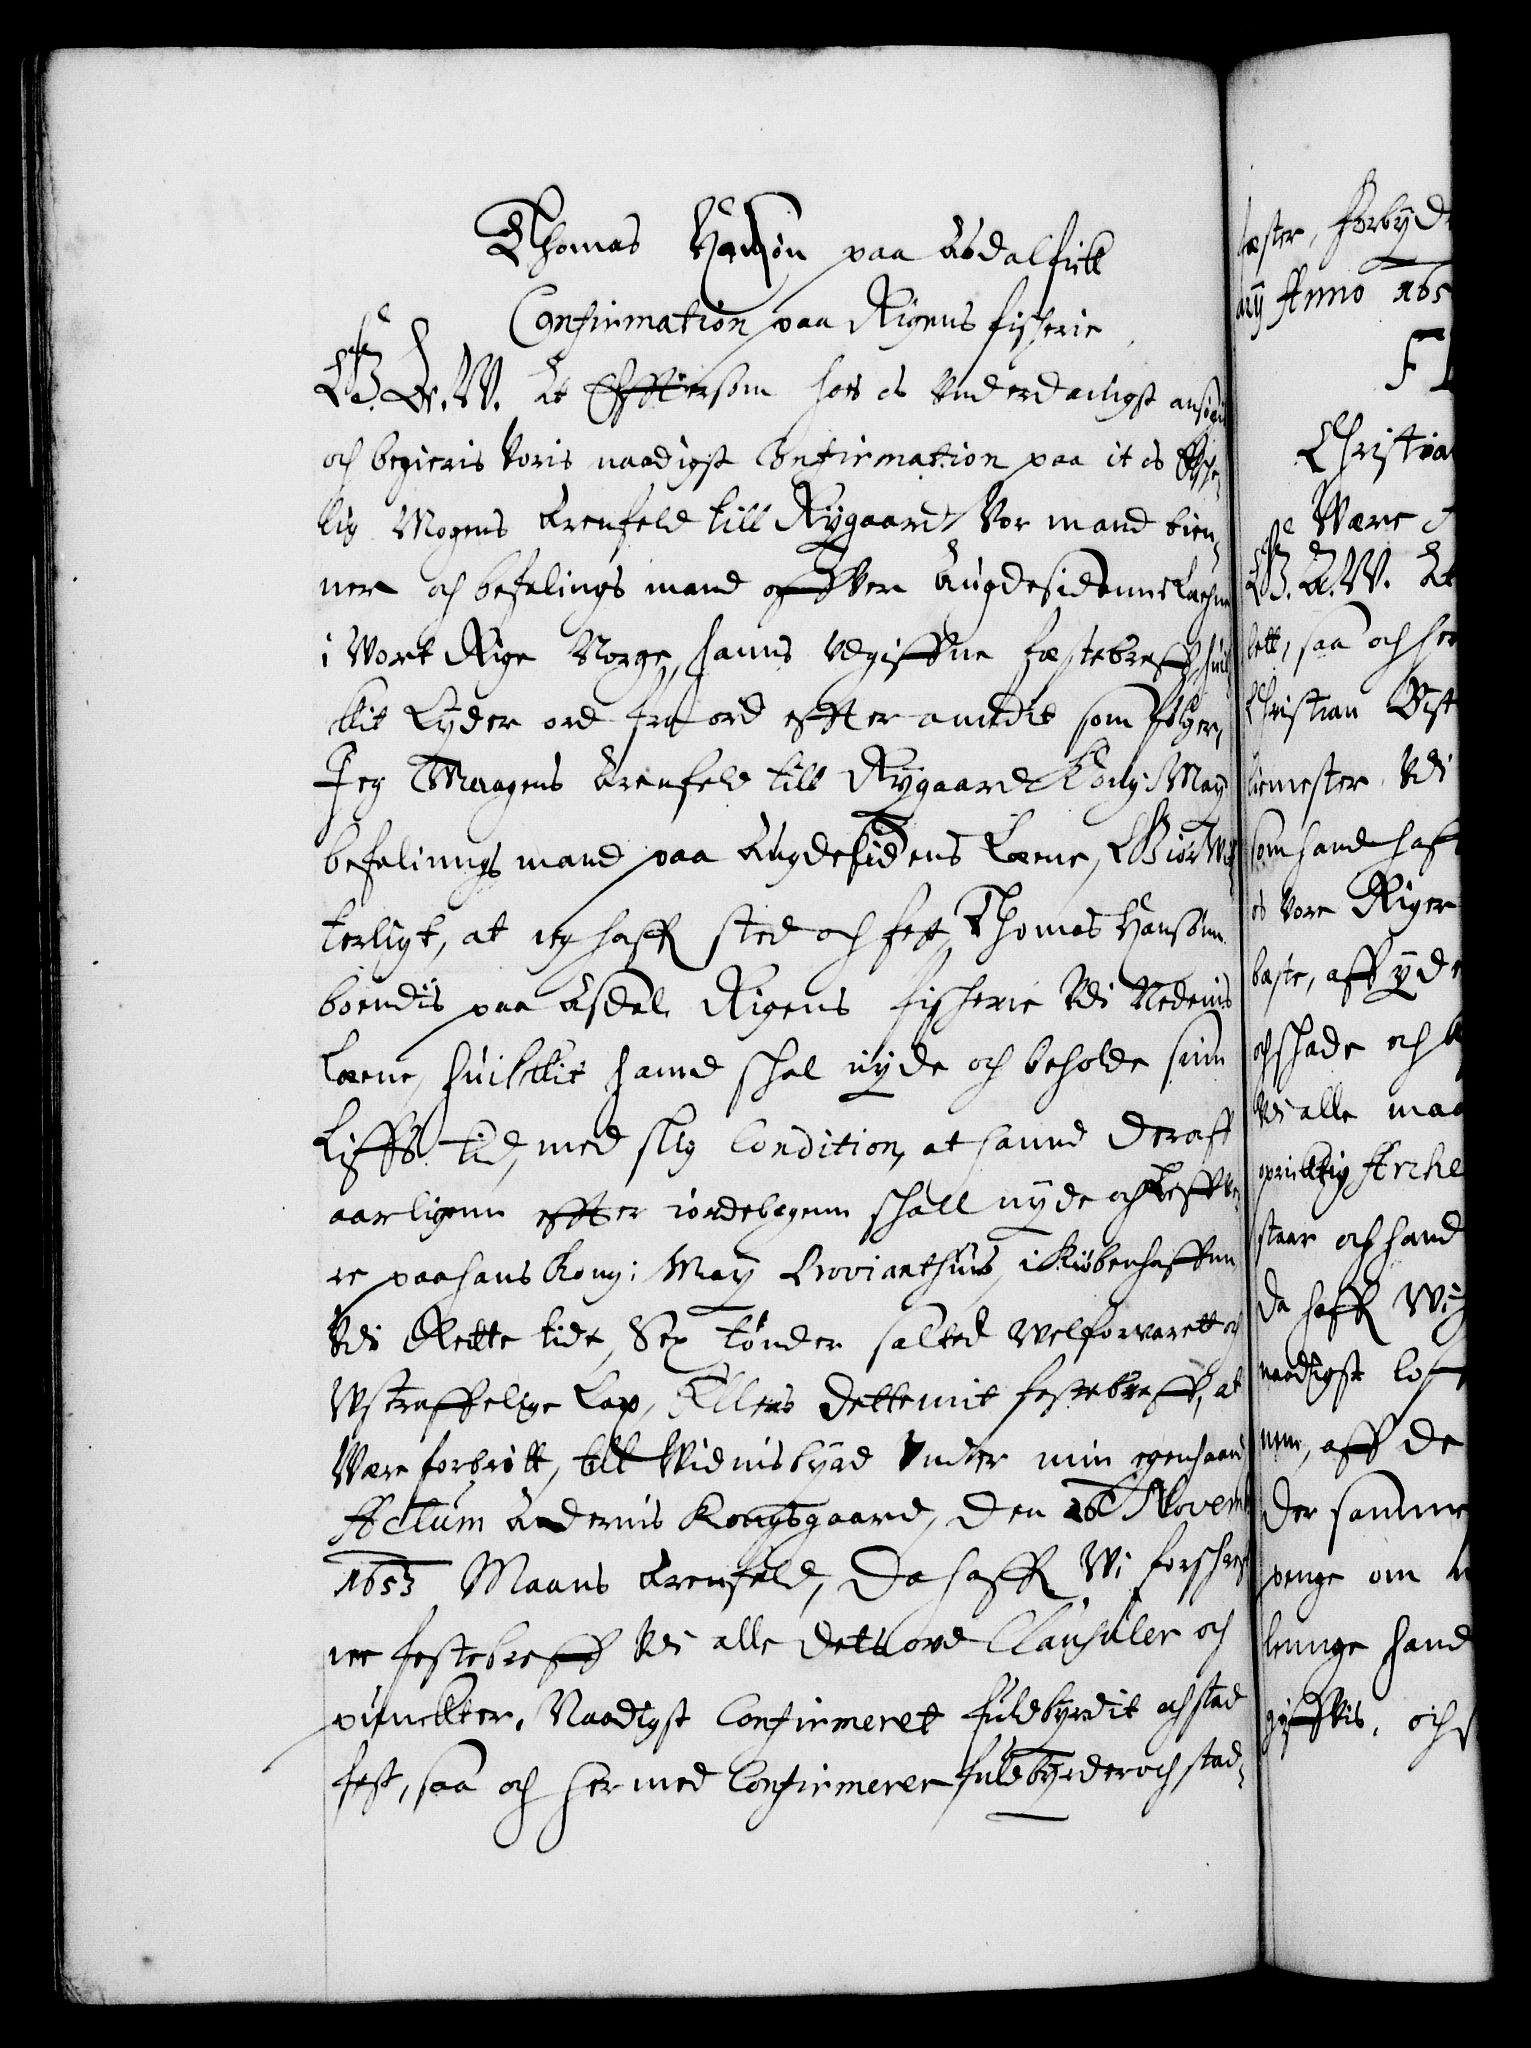 Thomas Hansøn paa Asdal fick
Confirmation paa Rigens fisherie
G. A. W. At Efftersom hos os Underdanigst ansøgis
och begieris Voris naadigst Confirmation paa it os Elshe-
lig Mogens Arenfeld till Rygaard Vor mand tien-
ner och befalings mand offver Augdesidenns Laehne
i Vort Rige Norge, hanns udgiffne festebreff, huil-
ckit Lyder ord fra ord effter anndit som følger,
Jeg Maagens Arenfeld till Rygaard Kong: May:
befalinngs mand paa Augdesidens Læne, Giør Wit-
terligt, at ieg haffr sted och fest, Thomas Hansønn
boendis paa Asdal Rigens fisherie Udi Nedenis
Læne, huilckit hannd shal nyde och beholde sinn
Liffs tid, med slig Condition, at hannd deraff
aarligenn effter iordebogenn shall nyde och leffve-
re paa hans Kong: May: Provianthuus, i Kiøbenhaffnn
Udi Rette tide, Sex tønder salted welforvarett och
Ustraffelige Lax, Ellers dette mit festebreff, at
Være forbrøtt, till Vidnisbyrd Under min egenhaand
Actum Andernis Kongsgaard, den 26 Novemb
1653 Maans Arenfeld, Da haffr Wi forschreff-
ne festebreff Udi alle dets ord Clausuler och
punckter, Naadigst Confirmeret fuldbyrdit och stad
fest, saa och hermed Confirmerer fuldbyrder och stad-
fæster, forbyd
Anno 165
Christian
Være
G. A. W. At
lett, saa och her
Christian
liemester Udi
som hand haff
os Vore Riger
beste, aff yde
och shade och
Udi alle maa
oprichtig Arche
staar och hand
da haffr Wi
naadigst loff
nem, aff de
der samme
penge om
lennge hand
giffvis, och